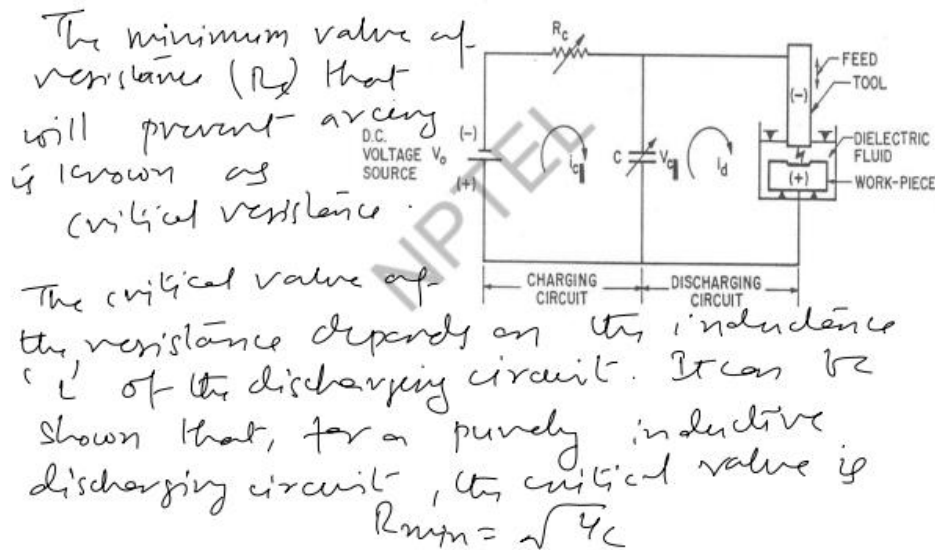 The minimum value of
resistance (Rc) that
will prevent arcing
is known as
critical resistance.
Rc
FEED
TOOL
(-)
D.C.
VOLTAGE V₀
SOURCE
(-)
(+)
ic
C
Vc
id
DIELECTRIC
FLUID
(+)
WORK-PIECE
NPTEL
CHARGING
CIRCUIT
DISCHARGING
CIRCUIT
The critical value of
the resistance depends on the inductance
'L' of the discharging circuit. It can be
shown that, for a purely inductive
discharging circuit, the critical value is
Rmin = √L/C